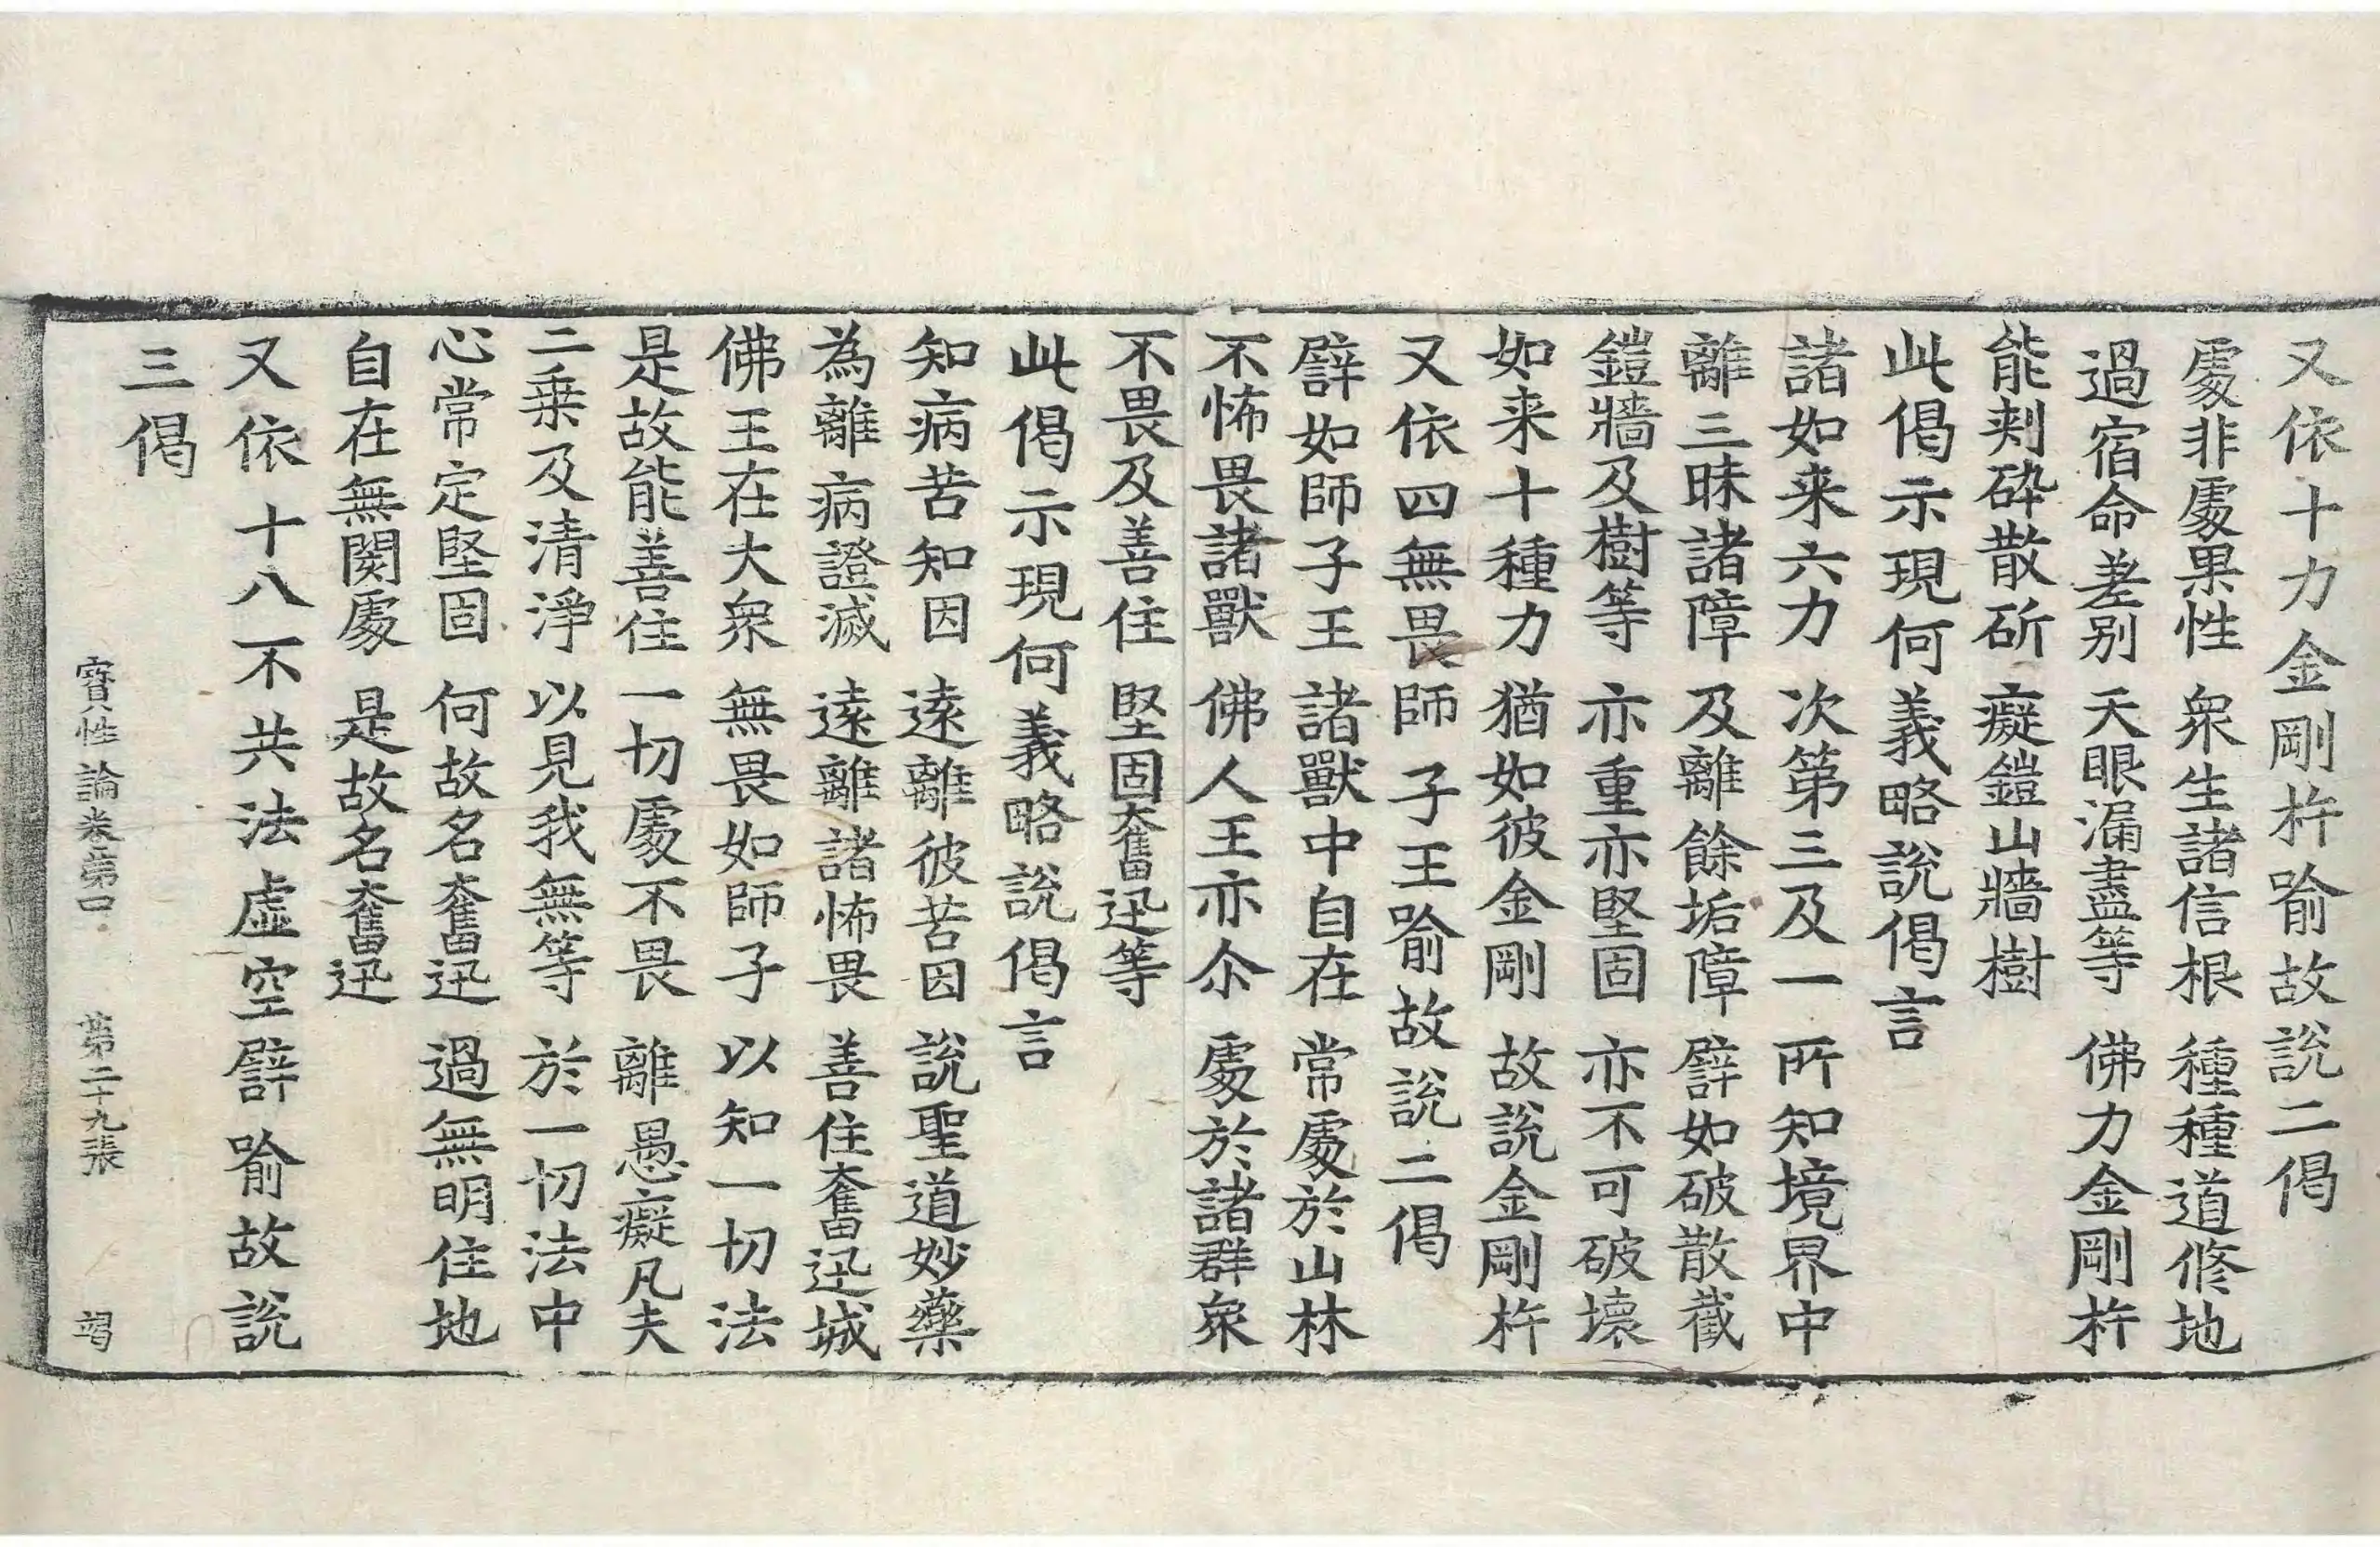 又依十力金剛杵喻故說二偈
處非處果性 衆生諸信根 種種道修地
過宿命差別 天眼漏盡等 佛力金剛杵
能刾碎散斫 癡鎧山牆樹
此偈示現何義略說偈言
諸如来六力 次第三及一 所知境界中
離三昧諸障 及離餘垢障 譬如破散截
鎧牆及樹等 亦重亦堅固 亦不可破壞
如来十種力 猶如彼金剛 故說金剛杵
又依四無畏師子王喻故說二偈
譬如師子王 諸獸中自在 常處於山林
不怖畏諸獸 佛人王亦尒 處於諸群衆
不畏及善住 堅固奮迅等
此偈示現何義略說偈言
知病苦知因 遠離彼苦因 說聖道妙藥
為離病證滅 遠離諸怖畏 善住奮迅城
佛王在大衆 無畏如師子 以知一切法
是故能善住 一切處不畏 離愚癡凡夫
二乗及清淨 以見我無等 於一切法中
心常定堅固 何故名奮迅 過無明住地
自在無閡處 是故名奮迅
又依十八不共法虛空譬喻故說
三偈
寶性論卷第四 第二十九張 竭